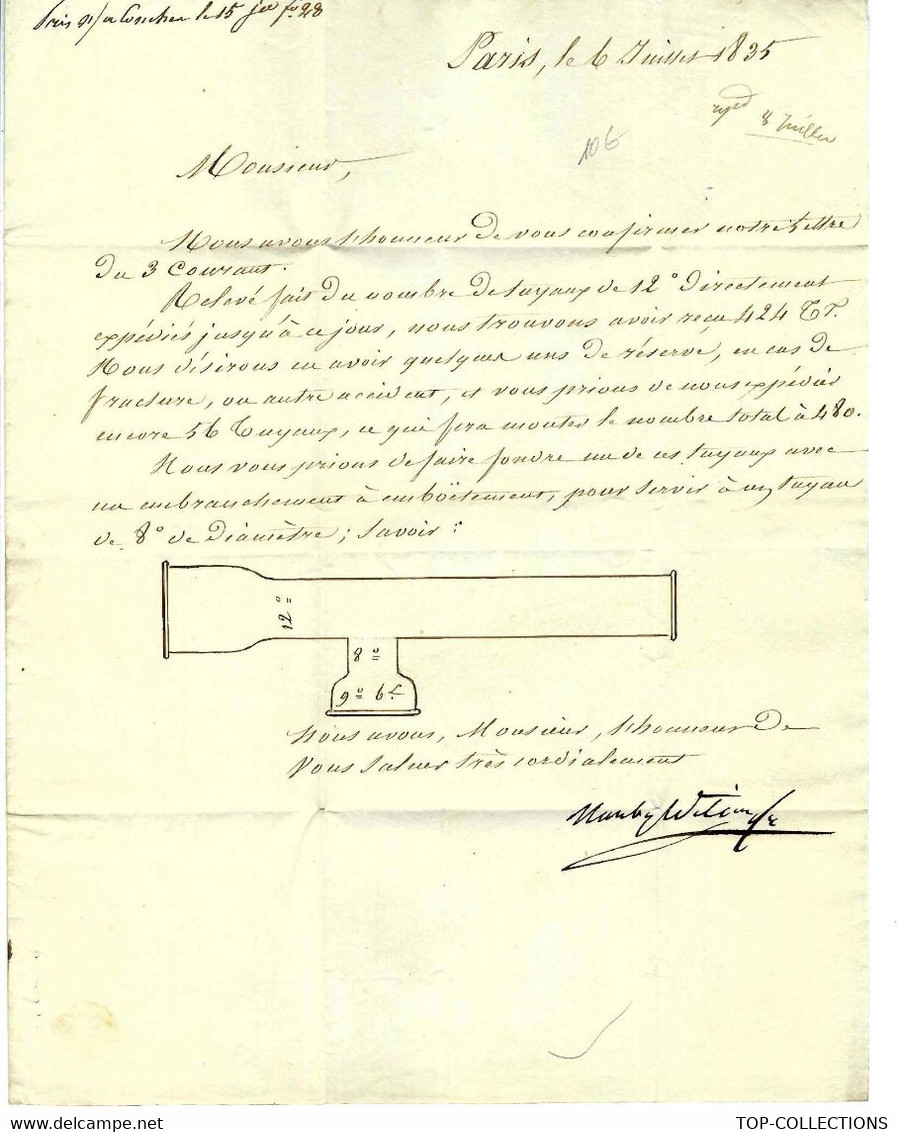 le 15
Paris, le 6 Juillet 1835
8 Juillet
106
Monsieur,
Nous avons l'honneur de vous confirmer notre lettre
du 3 Courant.
Relevé fait du nombre de tuyaux de 12° directement
expédiés jusqu'à ce jour, nous trouvons avoir reçu 424 TX.
Nous désirons en avoir quelques uns de réserve, en cas de
fracture, ou autre accident, et vous prions de nous expédier
encore 56 Tuyaux, ce qui fera monter le nombre total à 480.
Nous vous prions de faire fondre un de ces tuyaux avec
un embranchement à emboëtement, pour servir à un tuyau
de 8° de Diamètre; Savoir:
12°
8°
9° 6
Nous avons, Monsieur, l'honneur de
Vous Saluer très cordialement
Manby Wilson
TOP-COLLECTIONS